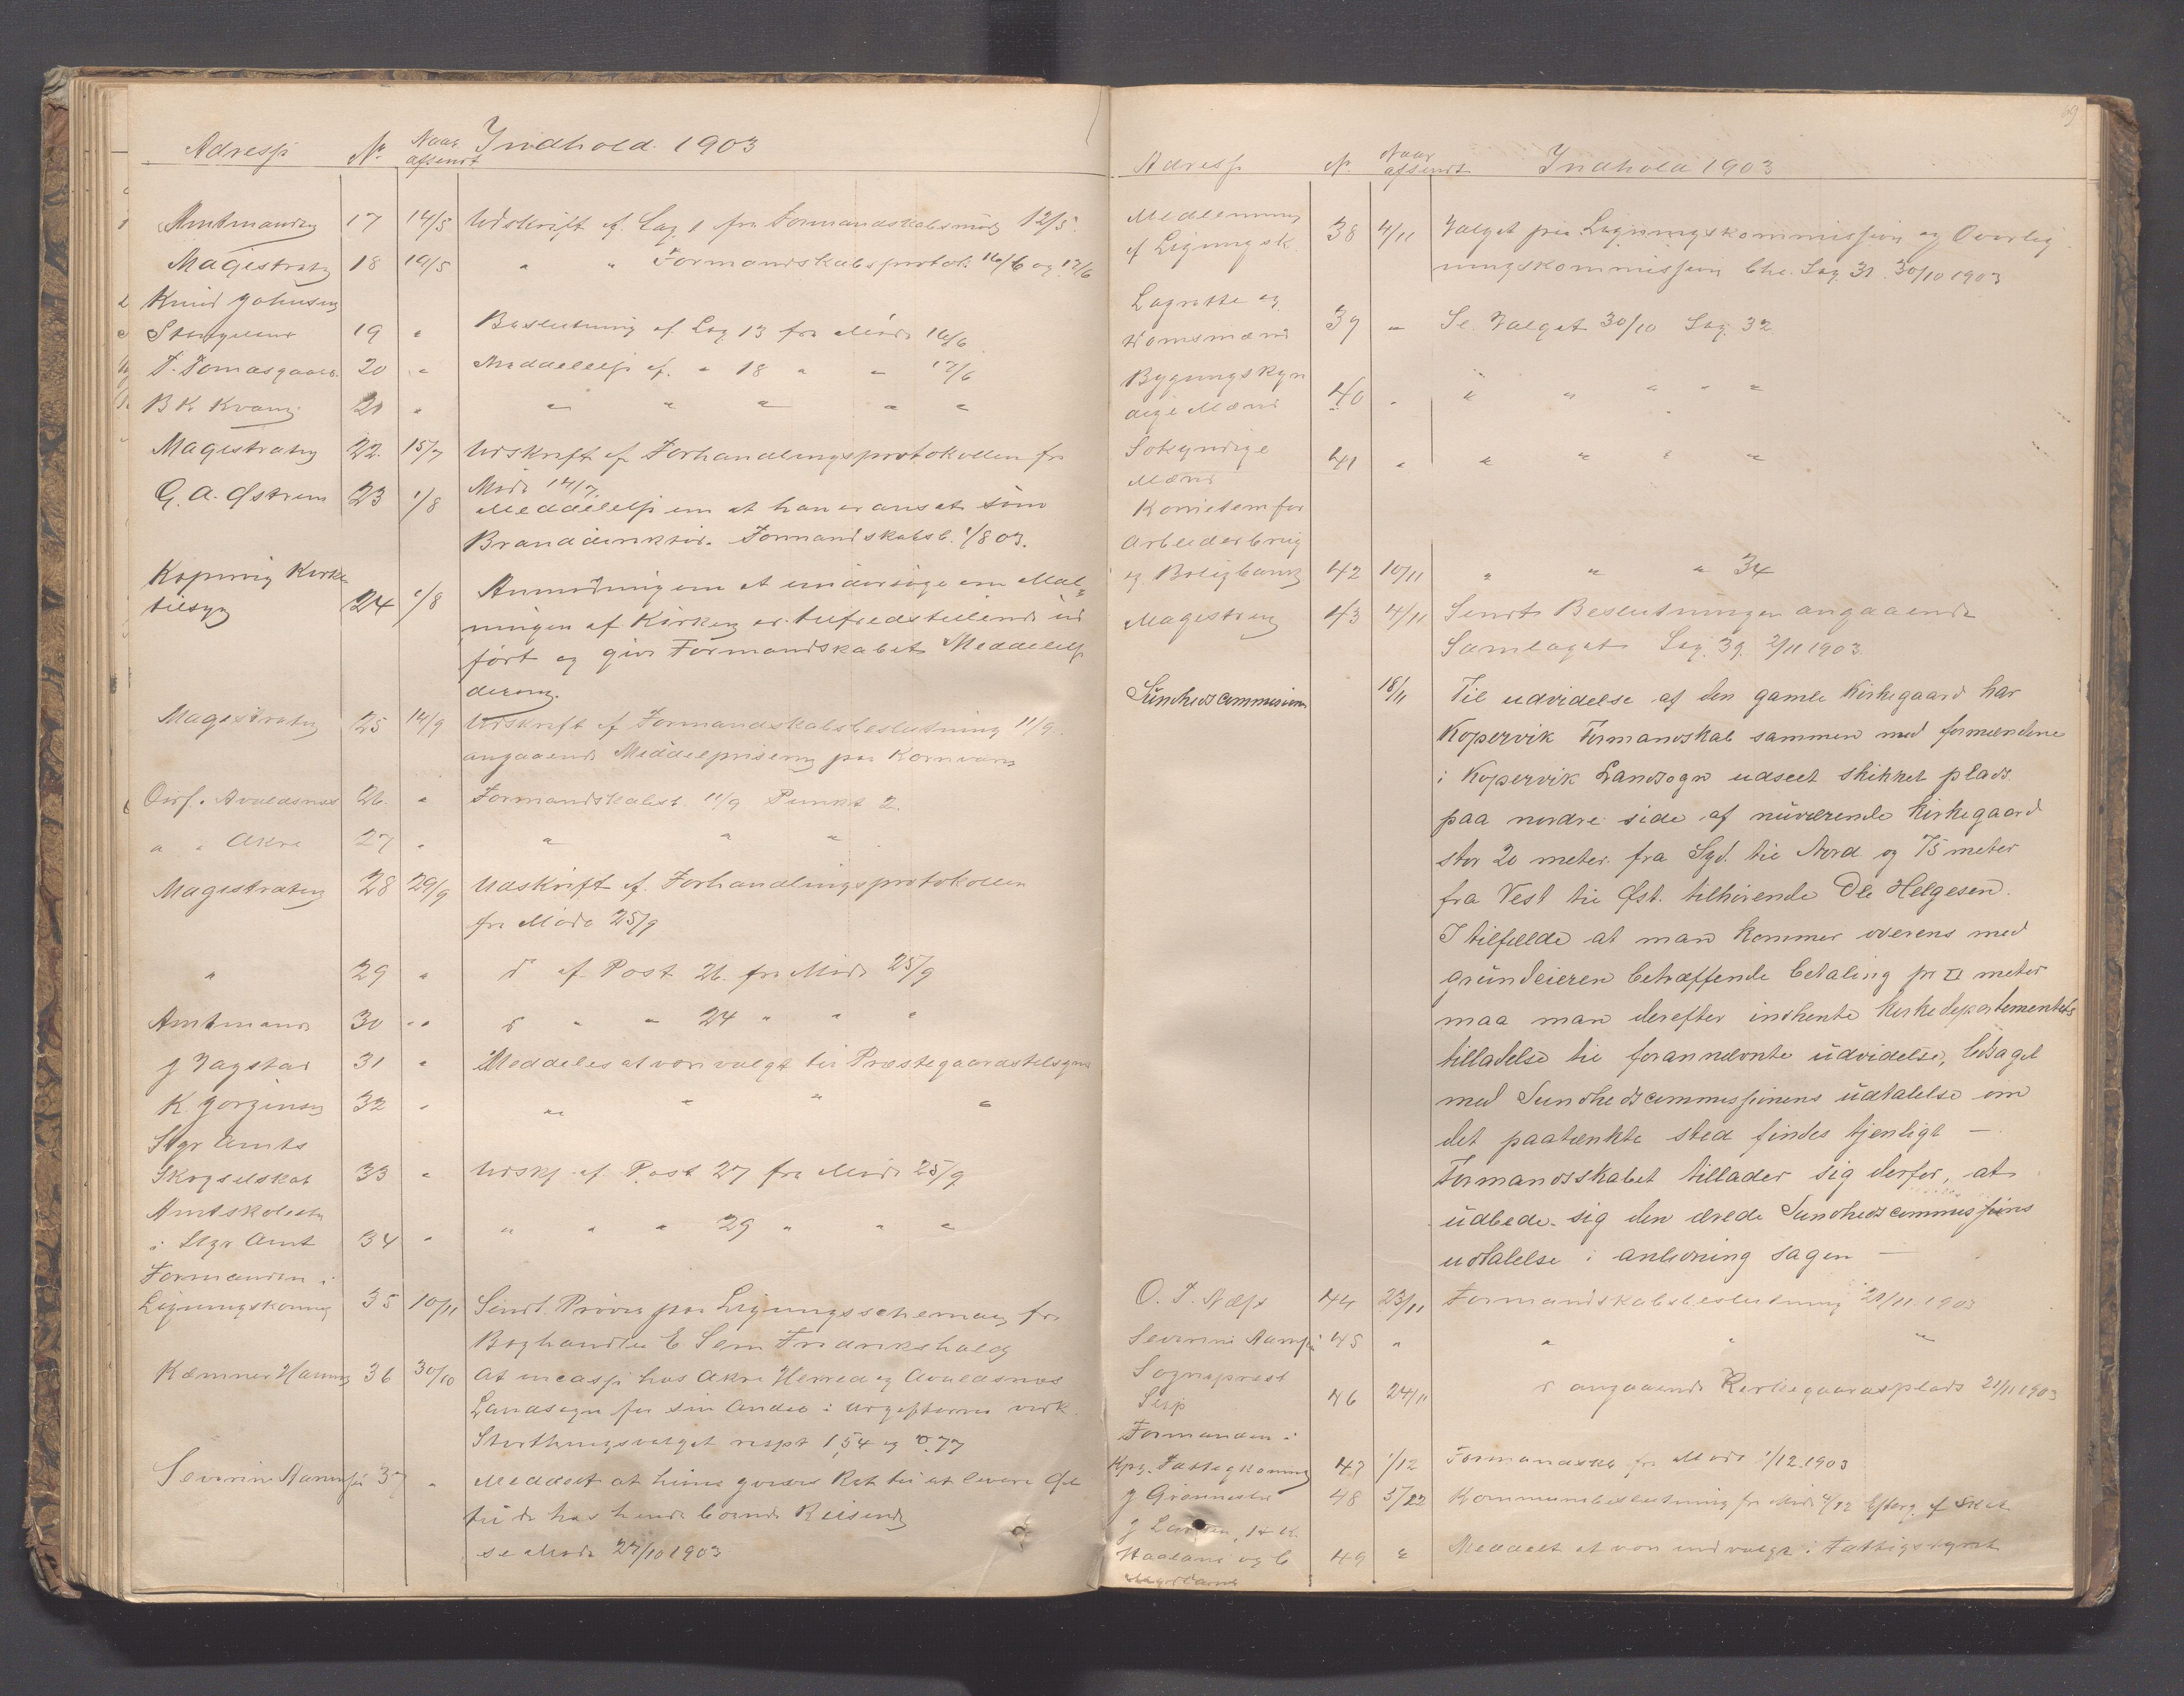 Adresse No Naar afsendt Indhold 1903
Amtmanden 17 14/5 Udskrift af Sag 1 fra Formandskabsmøde 12/5.
Magistraten 18 19/5 " " Formandskabsprotok. 16/6 og 17/6
Knud Johnsen
Stangeland 19 " Beslutning af Sag 13 fra Møde 16/6
T. Tomasgaard 20 " Meddelelse af " 18 " " 17/6
B K Kvam 21 " " " " " "
Magistraten 22 15/7 Udskrift af Forhandlingsprotokollen fra
Møde 14/7.
G. A. Østrem 23 1/8 Meddelelse om at han er ansat som
Branddirektør. Formandskabsb. 1/8 03.
Kopervig Kirke
tilsyn 24 1/8 Anmodning om at undersøge om Mal-
ningen af Kirken er tilfredstillende ud
ført og give Formandskabet Meddelelse
derom.
Magistraten 25 14/9 Udskrift af Formandskabsbeslutning 11/9
angaaende Meddelpriserne paa Kornvarer
Oirf. Avaldsnæs 26 " Formandskabsb. 11/9 Punkt 2.
" " Akre 27 " " " "
Magistraten 28 29/9 Udskrift af Forhandlingsprotokollen
fra Møde 25/9
" 29 " d af Post 26 fra Møde 25/9
Amtmand 30 " d " " 24 " " "
J Vagstad 31 " Meddeles at være valgt til Præstegaardstilsyns
K. Jørginsen 32 " " " " "
Stgr Amts
Skogselskab 33 " Udskr af Post 27 fra Møde 25/9
Amtskolesty
i Stgr Amt 34 " " " " 29 " " "
Formanden i
Ligningskomm 35 10/11 Sendt Prøver paa Ligningsschemaer fra
Boghandler E Sem Fredrikshald
Kæmner Hanns 36 30/10 At incasse hos Akre Herred og Avaldsnæs
Landsogn for sin Andel i Udgifterne vedk.
Storthingsvalget respt 1,54 og 0,77
Severine Aamnes 37 " Meddelt at hun gives Ret til at levere Øl
til de hos hende boende Reisende
se Møde 27/10 1903.
69
Adresse No Naar afsendt Indhold 1903
Medlemmer
af Ligningsk. 38 4/11 Valget paa Ligningskommission og Overlig
ningskommission bhr. Sag 31. 30/10 1903
Lagrette og
Domsmænd 39 " Se Valget 30/10 Sag 32
Bygningskyn
dige Mænd 40 " " " " " "
Søkyndige
Mænd 41 " " " " "
Komiteen for
Arbeiderbrug
og Boligbank 42 10/11 " " " 34
Magistraten 43 4/11 Sendt Beslutningen angaaende
Samlaget Sag 39. 2/11 1903
Sundhedscommission 18/11 Til udvidelse af den gamle Kirkegaard har
Kopervik Formandskab sammen med formændene
i Kopervik Landsogn udseet skikket plads
paa nordre side af nuværende Kirkegaard
stor 20 meter fra Syd til Nord og 75 meter
fra Vest til Øst. tilhørende Ole Helgesen.
I tilfælde at man kommer overens med
grundeieren betræffende betaling pr □ meter
maa man derefter indhente Kirkedepartementets
tilladelse til forannævnte udvidelse, ledsaget
med Sundhedscommissionens udtalelse om
det paatænkte sted findes tjenligt —
Formandsskabet tillader sig derfor, at
udbede sig den ærede Sundhedscommissions
udtalelse i anledning sagen —
O. T. Næss 44 23/11 Formandskabsbeslutning 21/11 1903
Severine Aamnes 45 " " " "
Sogneprest
46 24/11 d angaaende Kirkegaardsplads 21/11 1903
Formanden i
Kpv. Fattigkomm 47 1/12 Formandskb fra Møde 1/12 1903
J Grønnestad 48 5/12 Kommunebeslutning fra Møde 4/12 Efterg. af Skat
J Larsen, H K
Haaland og C 49 " Meddelt at være indvalgt i Fattigstyret